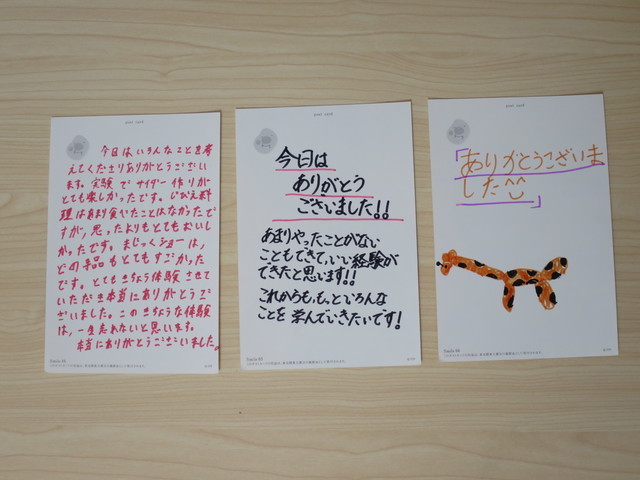 post card
今日は、いろんなことを考
えてくださりありがとうござい
ます。実験でサイダー作りが
とても楽しかったです。じびえ料
理はあまり食べたことはなかったで
すが、思ったよりもとてもおいし
かったです。まじっくショーは、
どの手品もとてもすごかった
です。とてもきちょう体験させて
いただき本当にありがとうござ
いました。このきちょうな体験
は、一生忘れないと思います。
本当にありがとうございました。
Smile 46
post card
今日は
ありがとう
ございました!!
あまりやったことがない
こともできて、いい経験が
できたと思います!!
これからも、もっといろんな
ことを学んでいきたいです!
Smile 45
post card
「ありがとうございま
した^^」
Smile 46